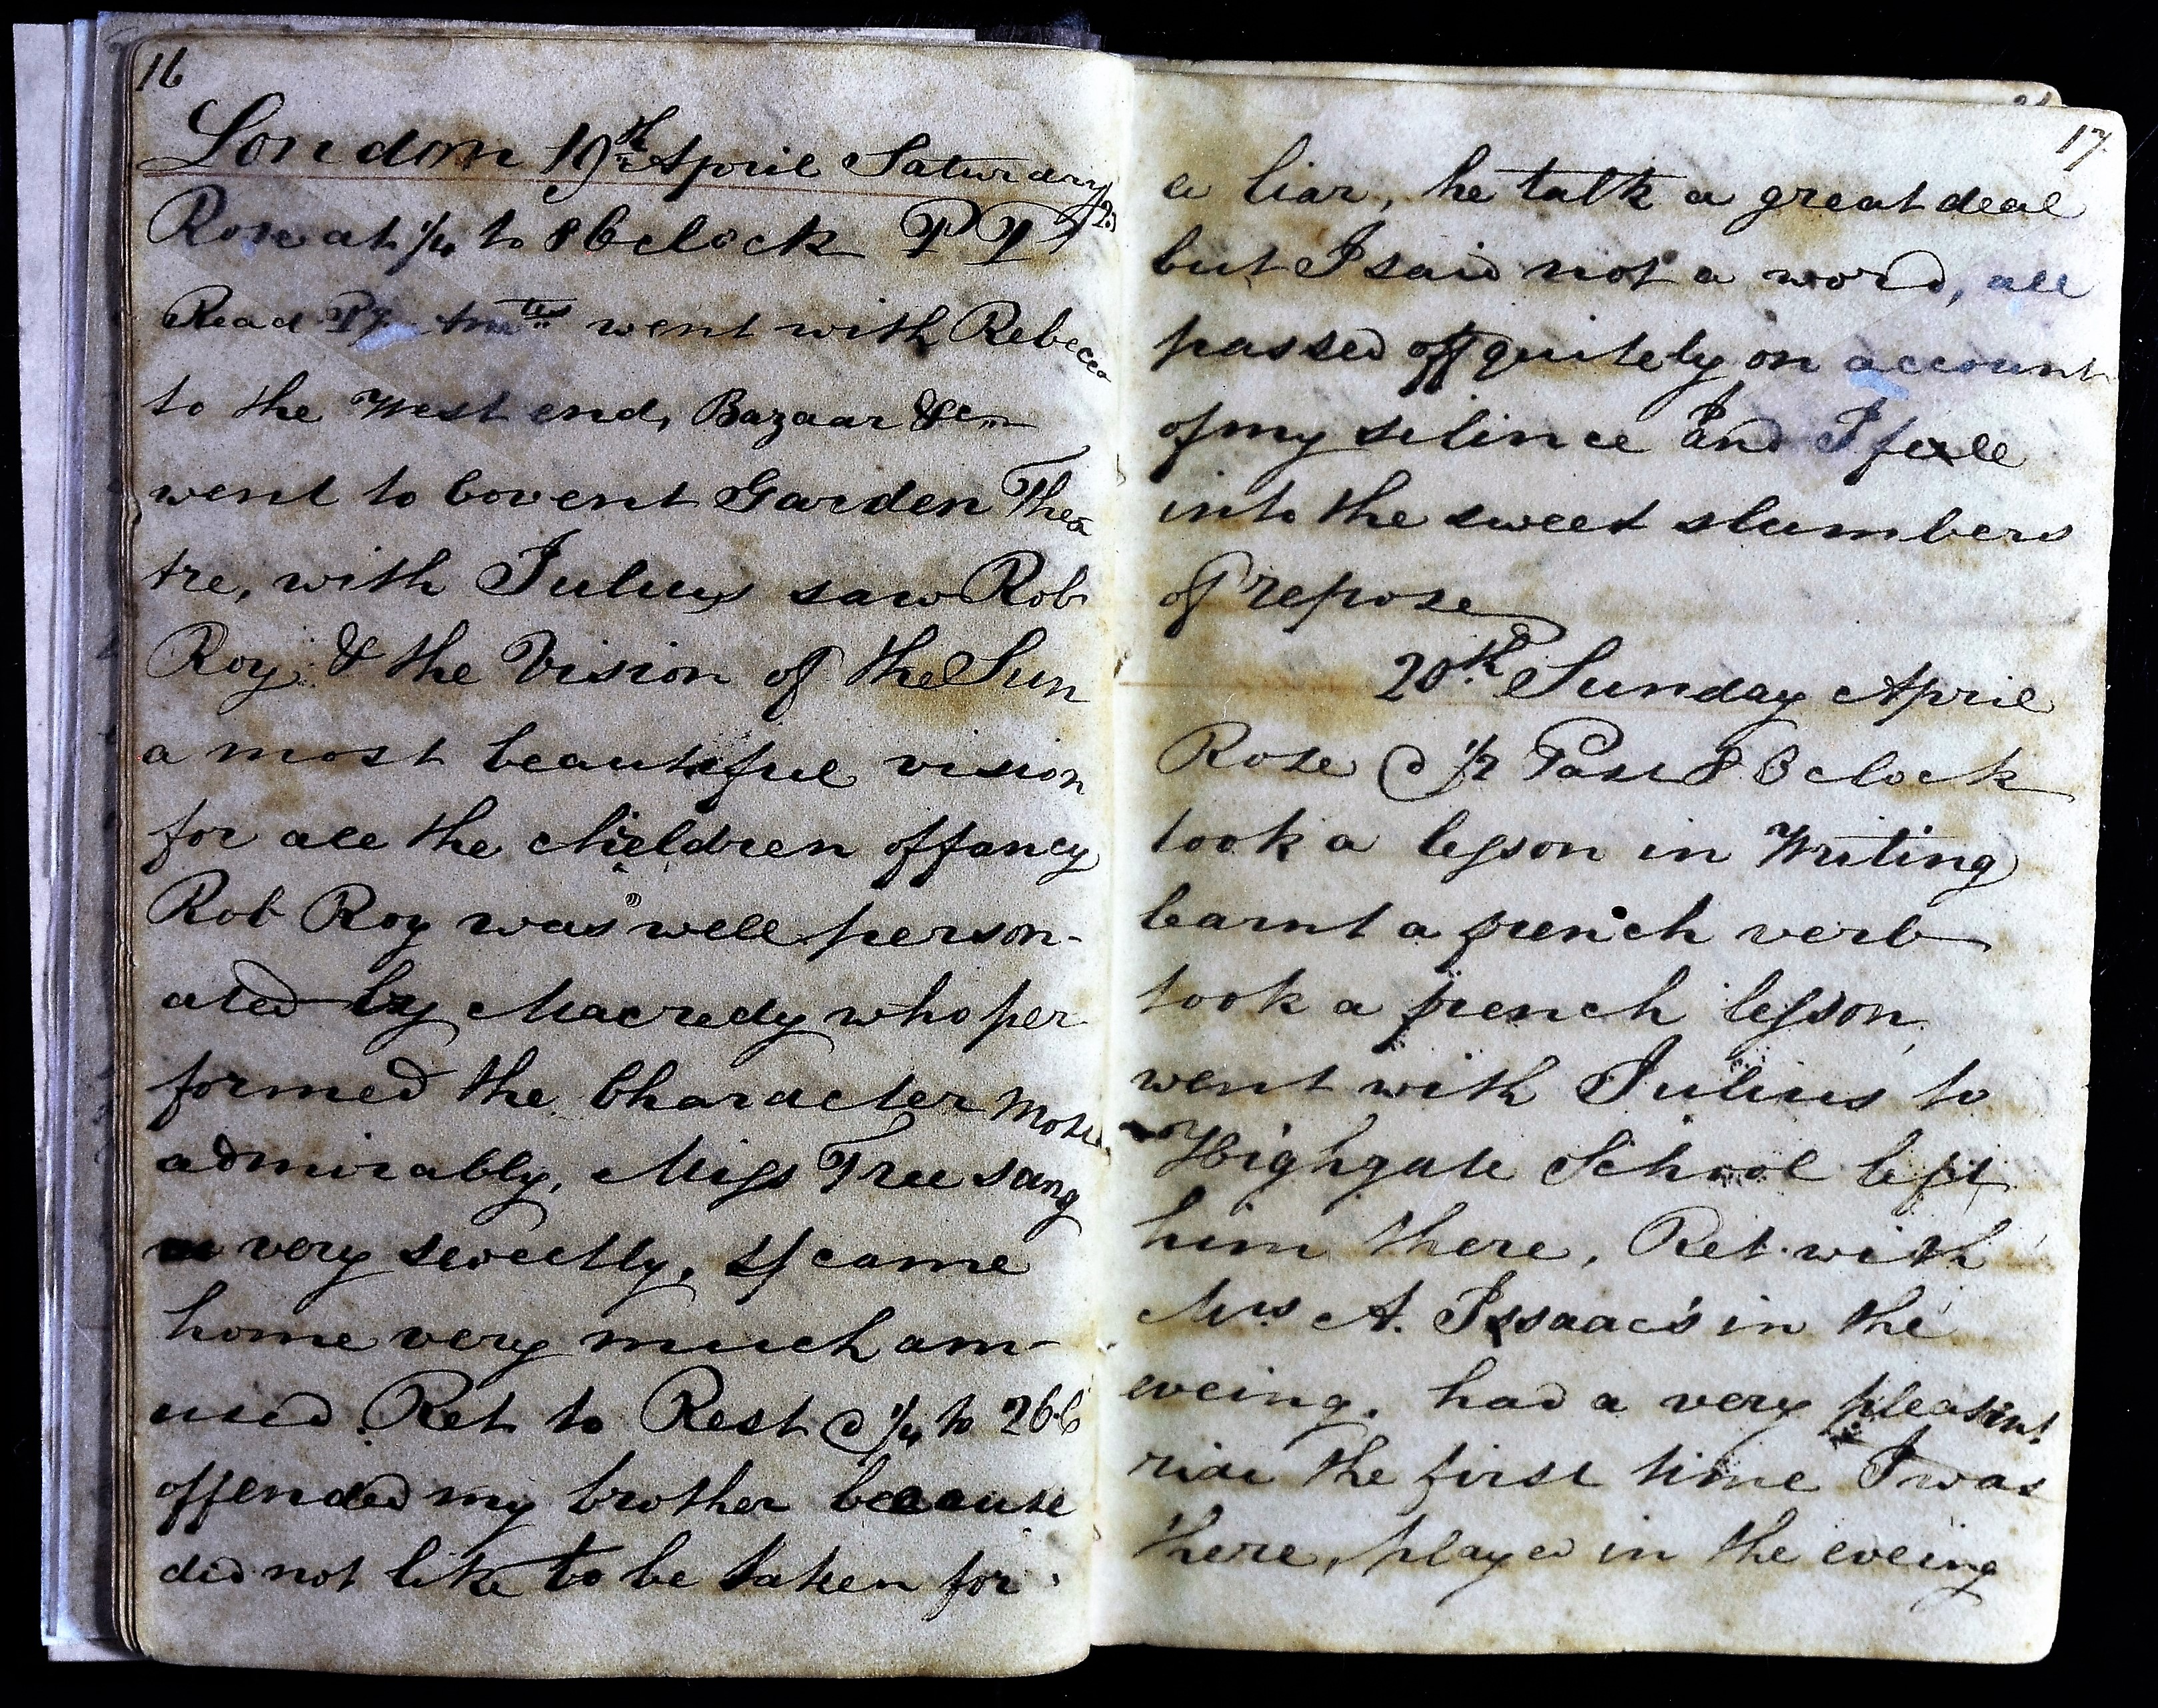 16
London 19th April Saturday
Rose at 1/4 to 8 Oclock P P
Read went with Rebecca
to the West end, Bazaar &c
went to Covent Garden Thea
tre, with Julius saw Rob
Roy & the Vision of the Sun
a most beautiful vision
for all the children of fancy
Rob Roy was well person-
ated by Macredy who per
formed the Character most
admirably, Miss Tree sang
very sweetly, came
home very much am-
used Ret to Rest @ 1/4 to 2
offended my brother because
did not like to be taken for
17
a liar, he talk a great deal
but I said not a word, all
passed off quitely on account
of my silince and I fell
into the sweet slumbers
of repose
20th Sunday April
Rose @ 1/2 Past 8 Oclock
took a lesson in Writing
learnt a french verb
took a french lesson
went with Julius to
Highgate School left
him there, Ret. with
Mrs A. Issaacs in the
eveing, had a very pleasant
ride the first time I was
there, played in the eveing